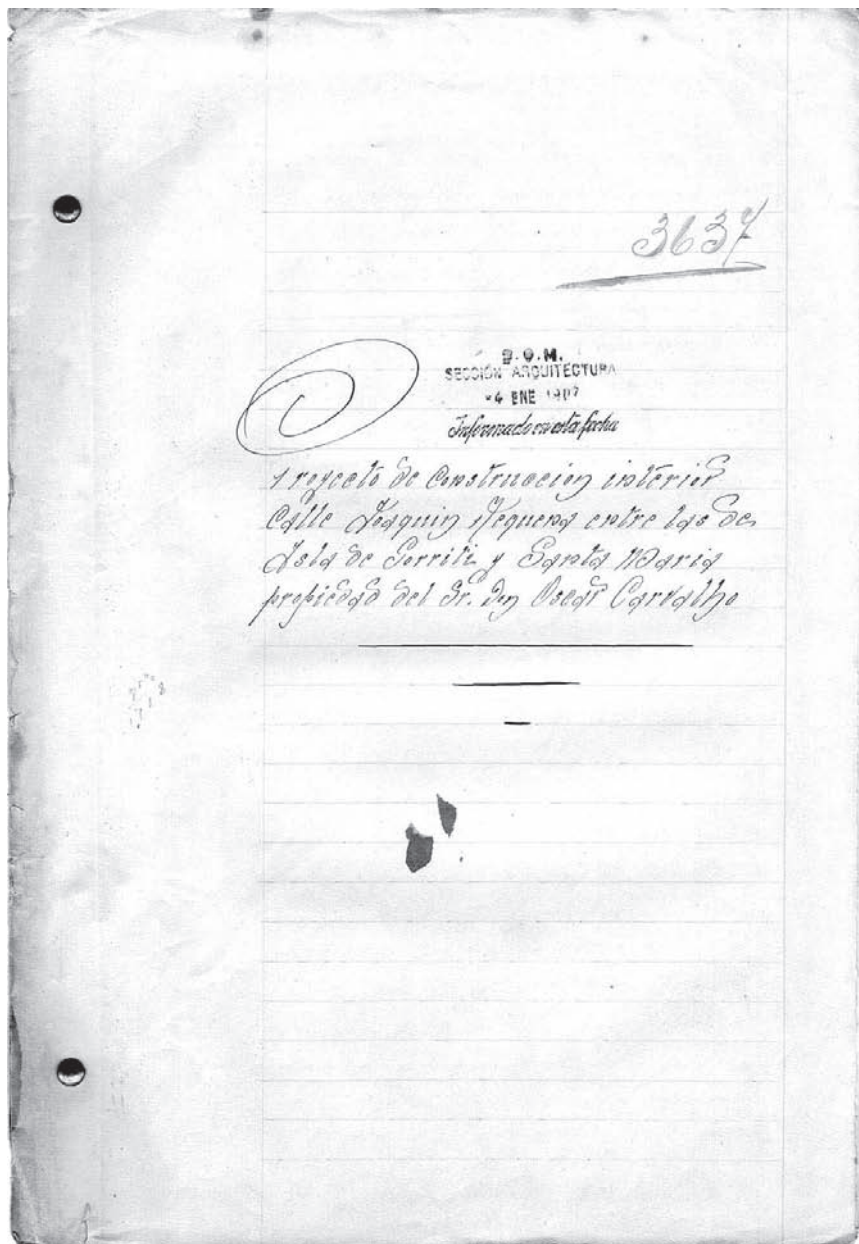 3637
D.O.M.
SECCIÓN ARQUITECTURA
-4 ENE 1907
Informado en esta fecha
Proyecto de Construccion interior
Calle Joaquin Requena entre las de
Isla de Gorriti y Santa Maria
propiedad del Sr. Don Oscar Carvalho